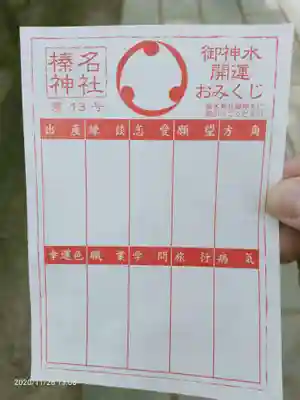 榛名
神社
第13号
御神水
開運
おみくじ
出産 縁談 恋愛 願望 方角
幸運色 職業 学問 旅行 病気
2020/11/28